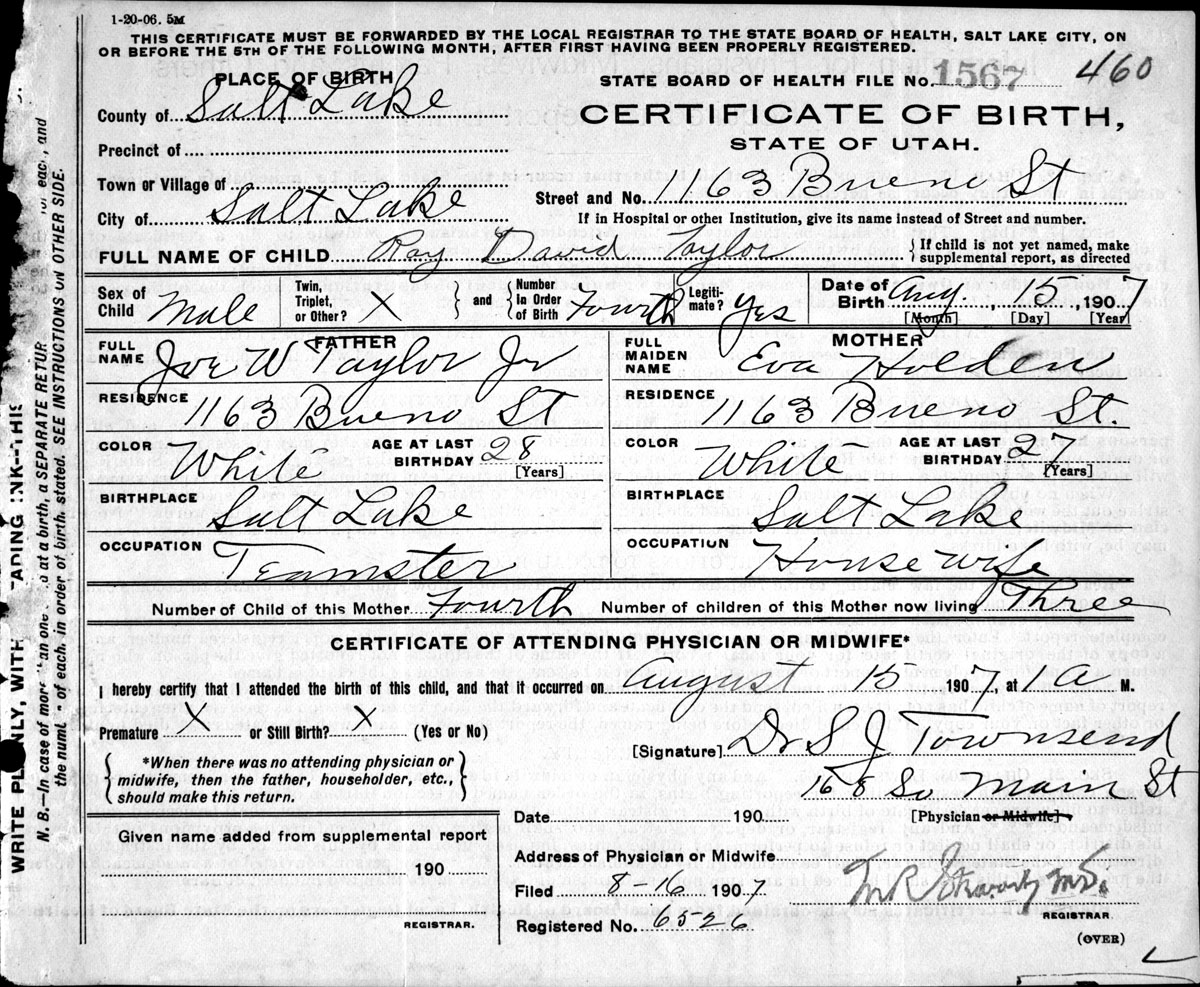 1-20-06. 5M
THIS CERTIFICATE MUST BE FORWARDED BY THE LOCAL REGISTRAR TO THE STATE BOARD OF HEALTH, SALT LAKE CITY, ON
OR BEFORE THE 5TH OF THE FOLLOWING MONTH, AFTER FIRST HAVING BEEN PROPERLY REGISTERED.
PLACE OF BIRTH
STATE BOARD OF HEALTH FILE No. 1567 460
County of Salt Lake
CERTIFICATE OF BIRTH,
STATE OF UTAH.
Precinct of
Town or Village of
Street and No. 1163 Bueno St
City of Salt Lake
If in Hospital or other Institution, give its name instead of Street and number.
FULL NAME OF CHILD Ray David Taylor
} If child is not yet named, make
supplemental report, as directed
Sex of Child Male
Twin, Triplet, or Other? X } and { Number in Order of Birth Fourth
Legiti-mate? yes
Date of Birth Aug. 15, 1907
[Month] [Day] [Year]
FATHER
FULL NAME Joe W Taylor Jr
RESIDENCE 1163 Bueno St
COLOR White AGE AT LAST BIRTHDAY 28 [Years]
BIRTHPLACE Salt Lake
OCCUPATION Teamster
MOTHER
FULL MAIDEN NAME Eva Holden
RESIDENCE 1163 Bueno St.
COLOR White AGE AT LAST BIRTHDAY 27 [Years]
BIRTHPLACE Salt Lake
OCCUPATION House wife
Number of Child of this Mother Fourth Number of children of this Mother now living Three
CERTIFICATE OF ATTENDING PHYSICIAN OR MIDWIFE*
I hereby certify that I attended the birth of this child, and that it occurred on August 15 1907, at 1 A M.
Premature X or Still Birth? X (Yes or No)
{ *When there was no attending physician or
midwife, then the father, householder, etc.,
should make this return. }
[Signature] Dr S J Townsend
168 So Main St
[Physician or Midwife]
Date 190
Given name added from supplemental report
190
REGISTRAR.
Address of Physician or Midwife
Filed 8-16 1907
M R M.D.
REGISTRAR.
Registered No. 6526
(OVER)
WRITE PLAINLY, WITH ADING INK—THIS
N. B.—In case of more than one at a birth, a SEPARATE RETUR for each, and
the number of each, in order of birth, stated. SEE INSTRUCTIONS ON OTHER SIDE.